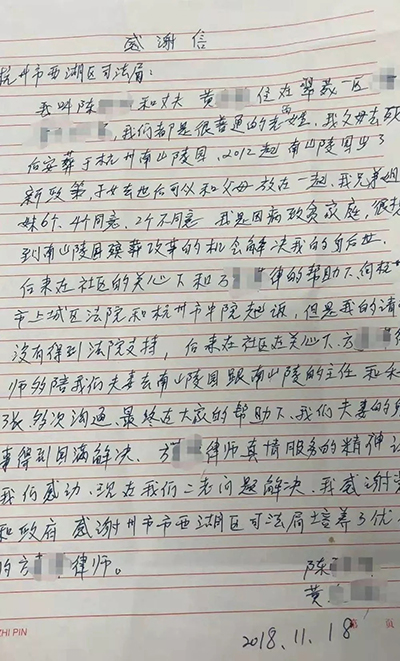 感谢信
杭州市西湖区司法局:
我叫陈 和丈夫 黄 住在翠苑一区
,我们都是很普通的老百姓,我父母去死
后安葬于杭州南山陵园,2012起南山陵园出了
新政策,子女去世后可以和父母放在一起,我兄弟姐
妹6个,4个同意,2个不同意 我是因病致贫家庭,很想
到南山陵园殡葬改革的机会解决我的身后世.
后来在社区的关心下和方 律的帮助下,向杭
市上城区法院和杭州市中院起诉,但是我的请
没有得到法院支持,后来在社区在关心下、方
师多陪我们夫妻去南山陵园跟南山陵的主任和
多次沟通,最终在大家的帮助下,我们夫妻的
事得到圆满解决、方 律师真情服务的精神
我们感动、现在我们二老问题解决、我感谢
和政府 感谢州市市西湖区司法局培养了优
的方 律师。
陈
黄
2018.11.18
ZHI PIN